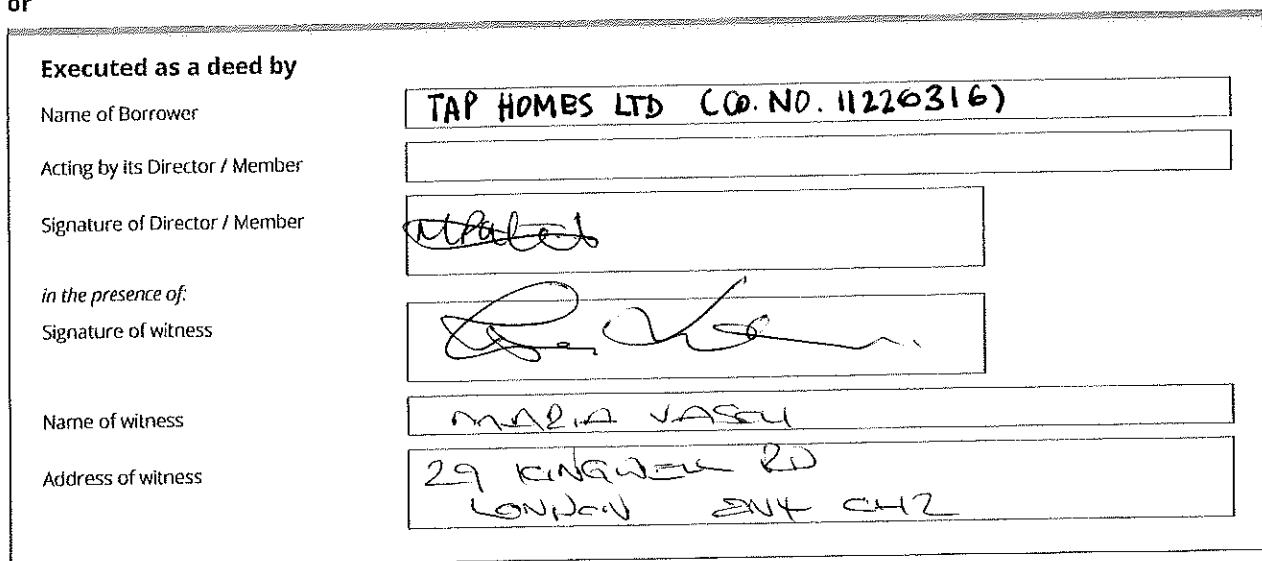 or
Executed as a deed by
Name of Borrower
TAP HOMES LTD (CO. NO. 11226316)
Acting by its Director / Member
Signature of Director / Member
in the presence of:
Signature of witness
Name of witness
MARIA
Address of witness
29 KINGWELL RD
LONDON EN4